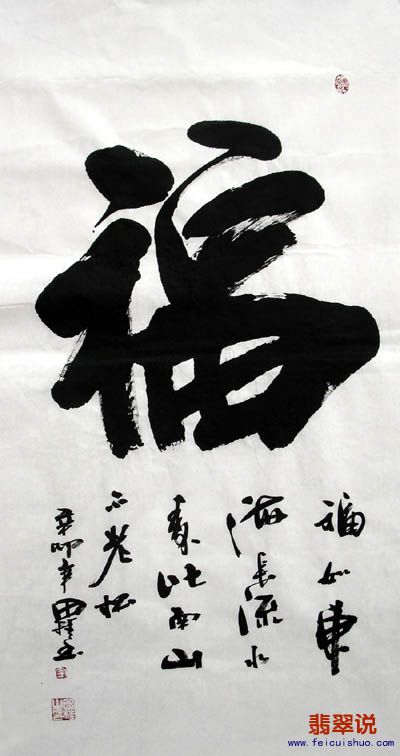 福
福如東
海長流水
寿比南山
不老松
卯年 書
翡翠说
www.feicuishuo.com